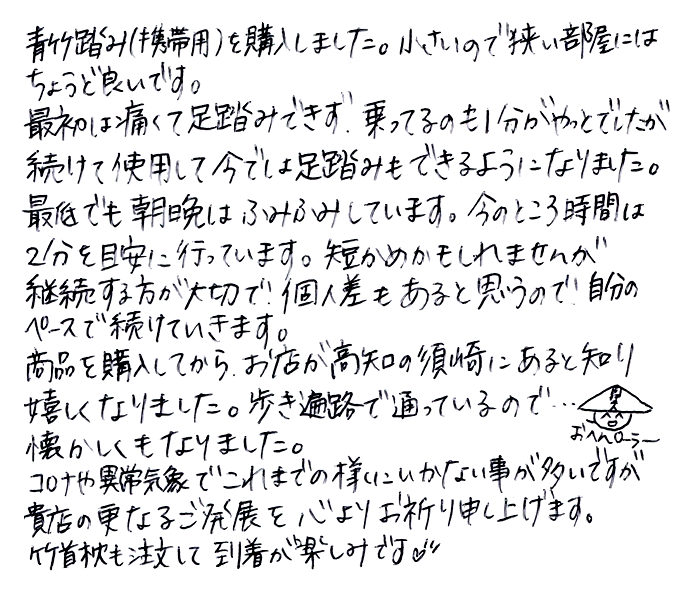 青竹踏み(携帯用)を購入しました。小さいので狭い部屋には
ちょうど良いです。
最初は痛くて足踏みできず、乗ってるのも1分がやっとでしたが
続けて使用して今では足踏みもできるようになりました。
最低でも朝晩はふみふみしています。今のところ時間は
2分を目安に行っています。短かめかもしれませんが
継続する方が大切で!個人差もあると思うので!自分の
ペースで続けていきます。
商品を購入してから、お店が高知の須崎にあると知り
嬉しくなりました。歩き遍路で通っているので…
おへんローラー
懐かしくもなりました。
コロナや異常気象でこれまでの様にいかない事が多いですが
貴店の更なるご発展を心よりお祈り申し上げます。
竹首枕も注文して到着が楽しみです♡"